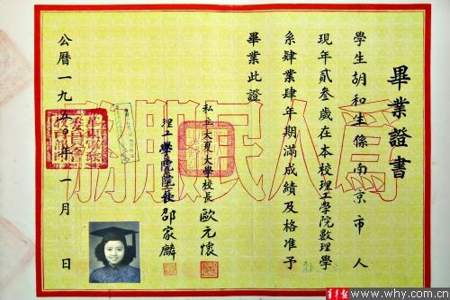 畢業證書
學生胡和生係南京市人
現年貳叁歲在本校理工學院數理學
系肄業肄年期滿成績及格准予
畢業此證
私立大夏大學校長 歐元懷
理工學院院長 邵家麟
公曆一九五〇年一月 日
為人民服務
www.why.com.cn